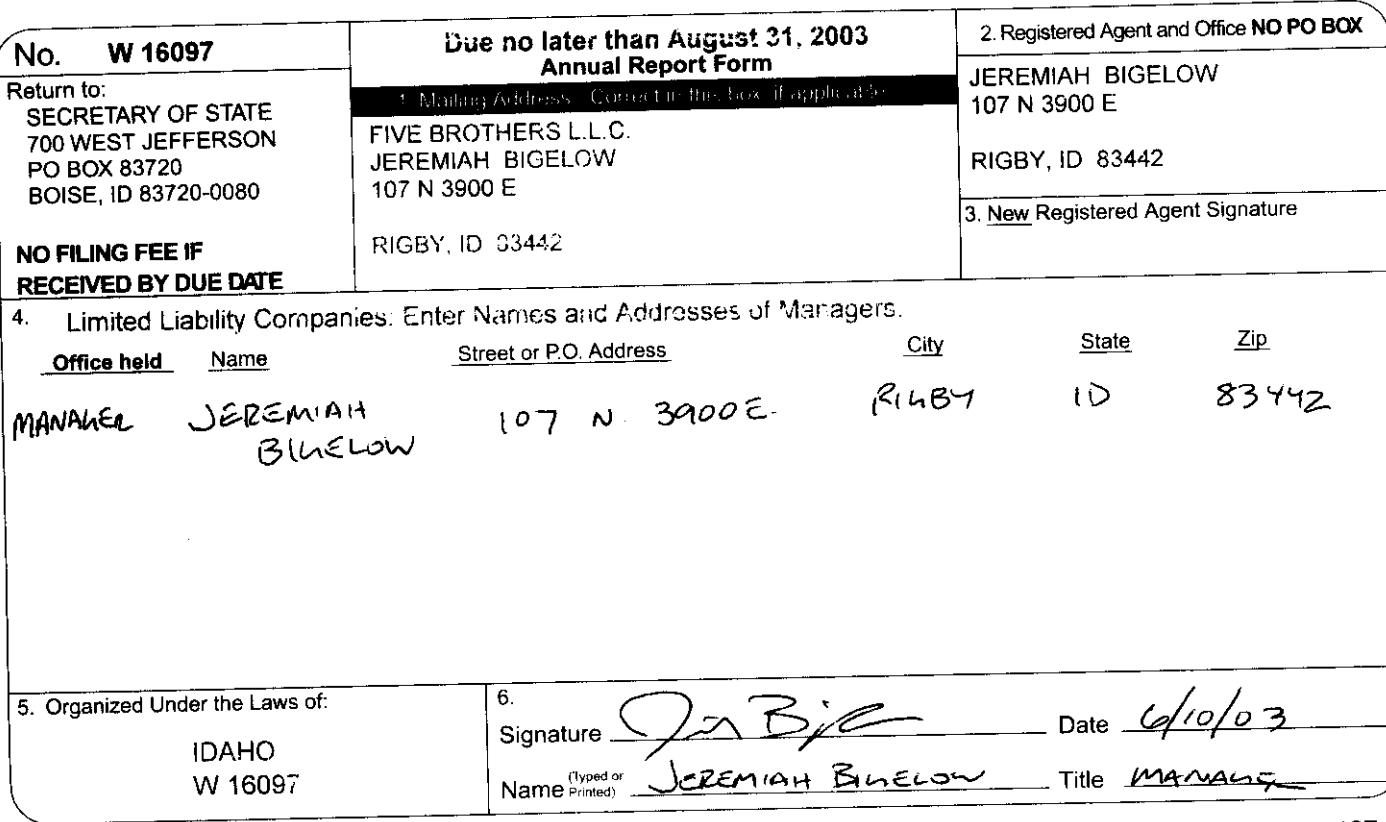 No. W 16097
Return to:
SECRETARY OF STATE
700 WEST JEFFERSON
PO BOX 83720
BOISE, ID 83720-0080
NO FILING FEE IF
RECEIVED BY DUE DATE
Due no later than August 31, 2003
Annual Report Form
1. Mailing Address Correct in this box, if applicable
FIVE BROTHERS L.L.C.
JEREMIAH BIGELOW
107 N 3900 E
RIGBY, ID 83442
2. Registered Agent and Office NO PO BOX
JEREMIAH BIGELOW
107 N 3900 E
RIGBY, ID 83442
3. New Registered Agent Signature
4. Limited Liability Companies: Enter Names and Addresses of Managers.
Office held Name Street or P.O. Address City State Zip
MANAGER JEREMIAH 107 N. 3900 E. RIGBY ID 83442
BIGELOW
5. Organized Under the Laws of:
IDAHO
W 16097
6.
Signature Date 6/10/03
Name (Typed or Printed) JEREMIAH BIGELOW Title MANAGER